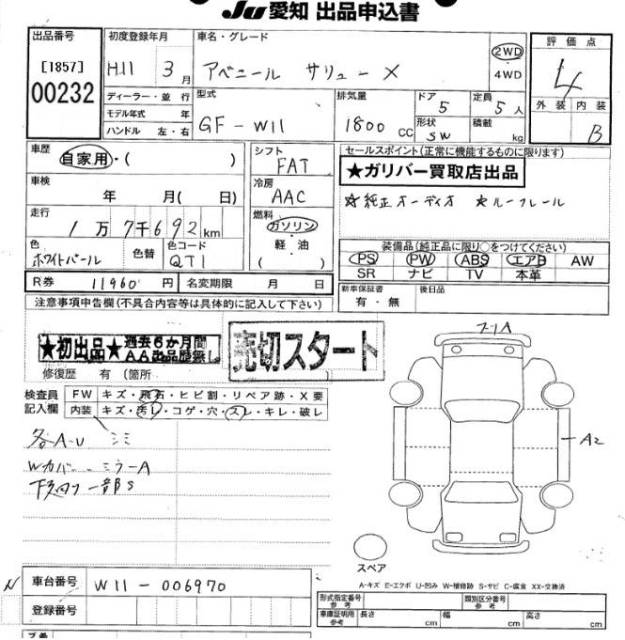 Ju 愛知 出品申込書
出品番号
[1857]
00232
初度登録年月
H11 3月
ディーラー・並行
モデル年式 年
ハンドル 左・右
車名・グレード
アベニール サリュー X
2WD
・
4WD
型式
GF-W11
排気量
1800 CC
ドア
5
形状
SW
定員
5人
積載
kg
評価点
4
外装 内装
B
車歴
自家用・( )
車検
年 月( 日)
走行
1万7千692km
色
ホワイトパール
色替
色コード
QT1
シフト
FAT
冷房
AAC
燃料
ガソリン
・
軽・油
( )
セールスポイント(正常に機能するものに限ります)
★ガリバー買取店出品
☆純正オーディオ ★ルーフレール
装備品(純正品に限り○をつけてください)
PS PW ABS エアB AW
SR ナビ TV 本革
R券 11960円 名変期限 月 日
新車保証書
有・無
後日品
注意事項申告欄(不具合内容等は具体的に記入して下さい)
★初出品★過去6か月間
AA出品歴無し
売切スタート
修復歴 有(箇所
検査員
記入欄
FW キズ・飛石・ヒビ割・リペア跡・X要
内装 キズ・汚レ・コゲ・穴・スレ・キレ・破レ
各A-U
ミラーA
下廻り一部S
フーA
A2
スペア
A-キズ E-エクボ U-凹み W-補修跡 S-サビ C-腐食 XX-交換済
N
車台番号 W11-006970
登録番号
形式指定番号
参考
類別区分番号
参考
車庫証明用
参考
長さ cm 幅 cm 高さ cm